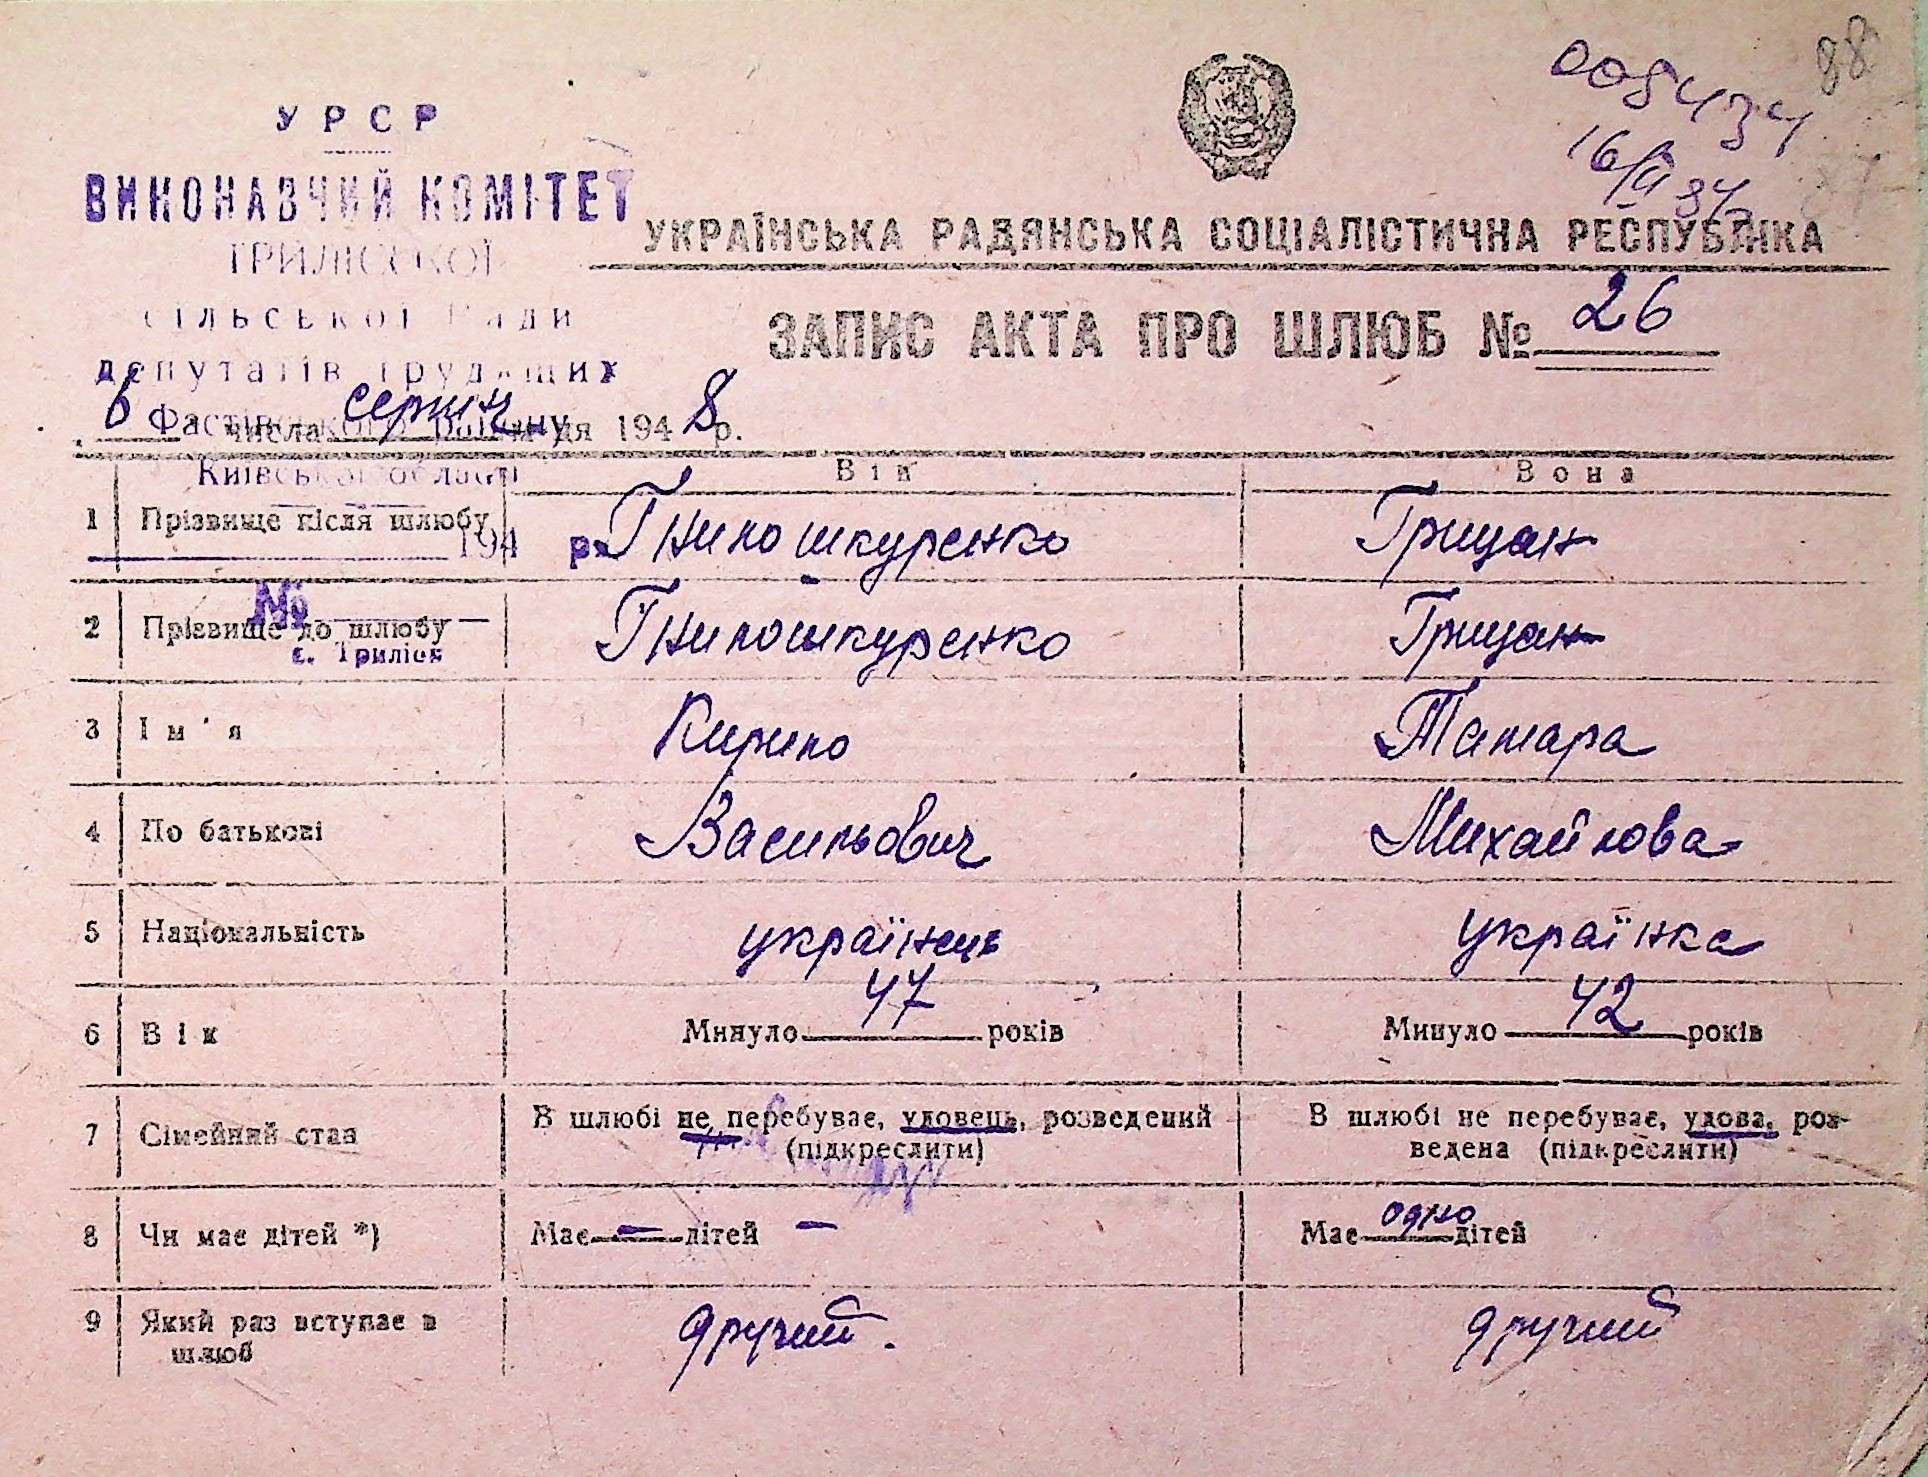 88
008434
16/VI 84
УРСР
ВИКОНАВЧИЙ КОМІТЕТ
ТРИЛІСЬКОЇ
сільської Ради
депутатів трудящих
Фастівського району
Київської області
194 р.
№
с. Триліси
УКРАЇНСЬКА РАДЯНСЬКА СОЦІАЛІСТИЧНА РЕСПУБЛІКА
ЗАПИС АКТА ПРО ШЛЮБ № 26
6 числа серпня м-ця 1948 р.
Він Вона
1 Прізвище після шлюбу Гнилошкуренко Грицан
2 Прізвище до шлюбу Гнилошкуренко Грицан
3 Ім'я Кирило Тамара
4 По батькові Васильович Михайлова
5 Національність українець українка
6 Вік Минуло 47 років Минуло 42 років
7 Сімейний стан В шлюбі не перебуває, удовець, розведений В шлюбі не перебуває, удова, роз-
(підкреслити) ведена (підкреслити)
8 Чи має дітей *) Має — дітей — Має одно дітей
9 Який раз вступає в другий. другий
шлюб